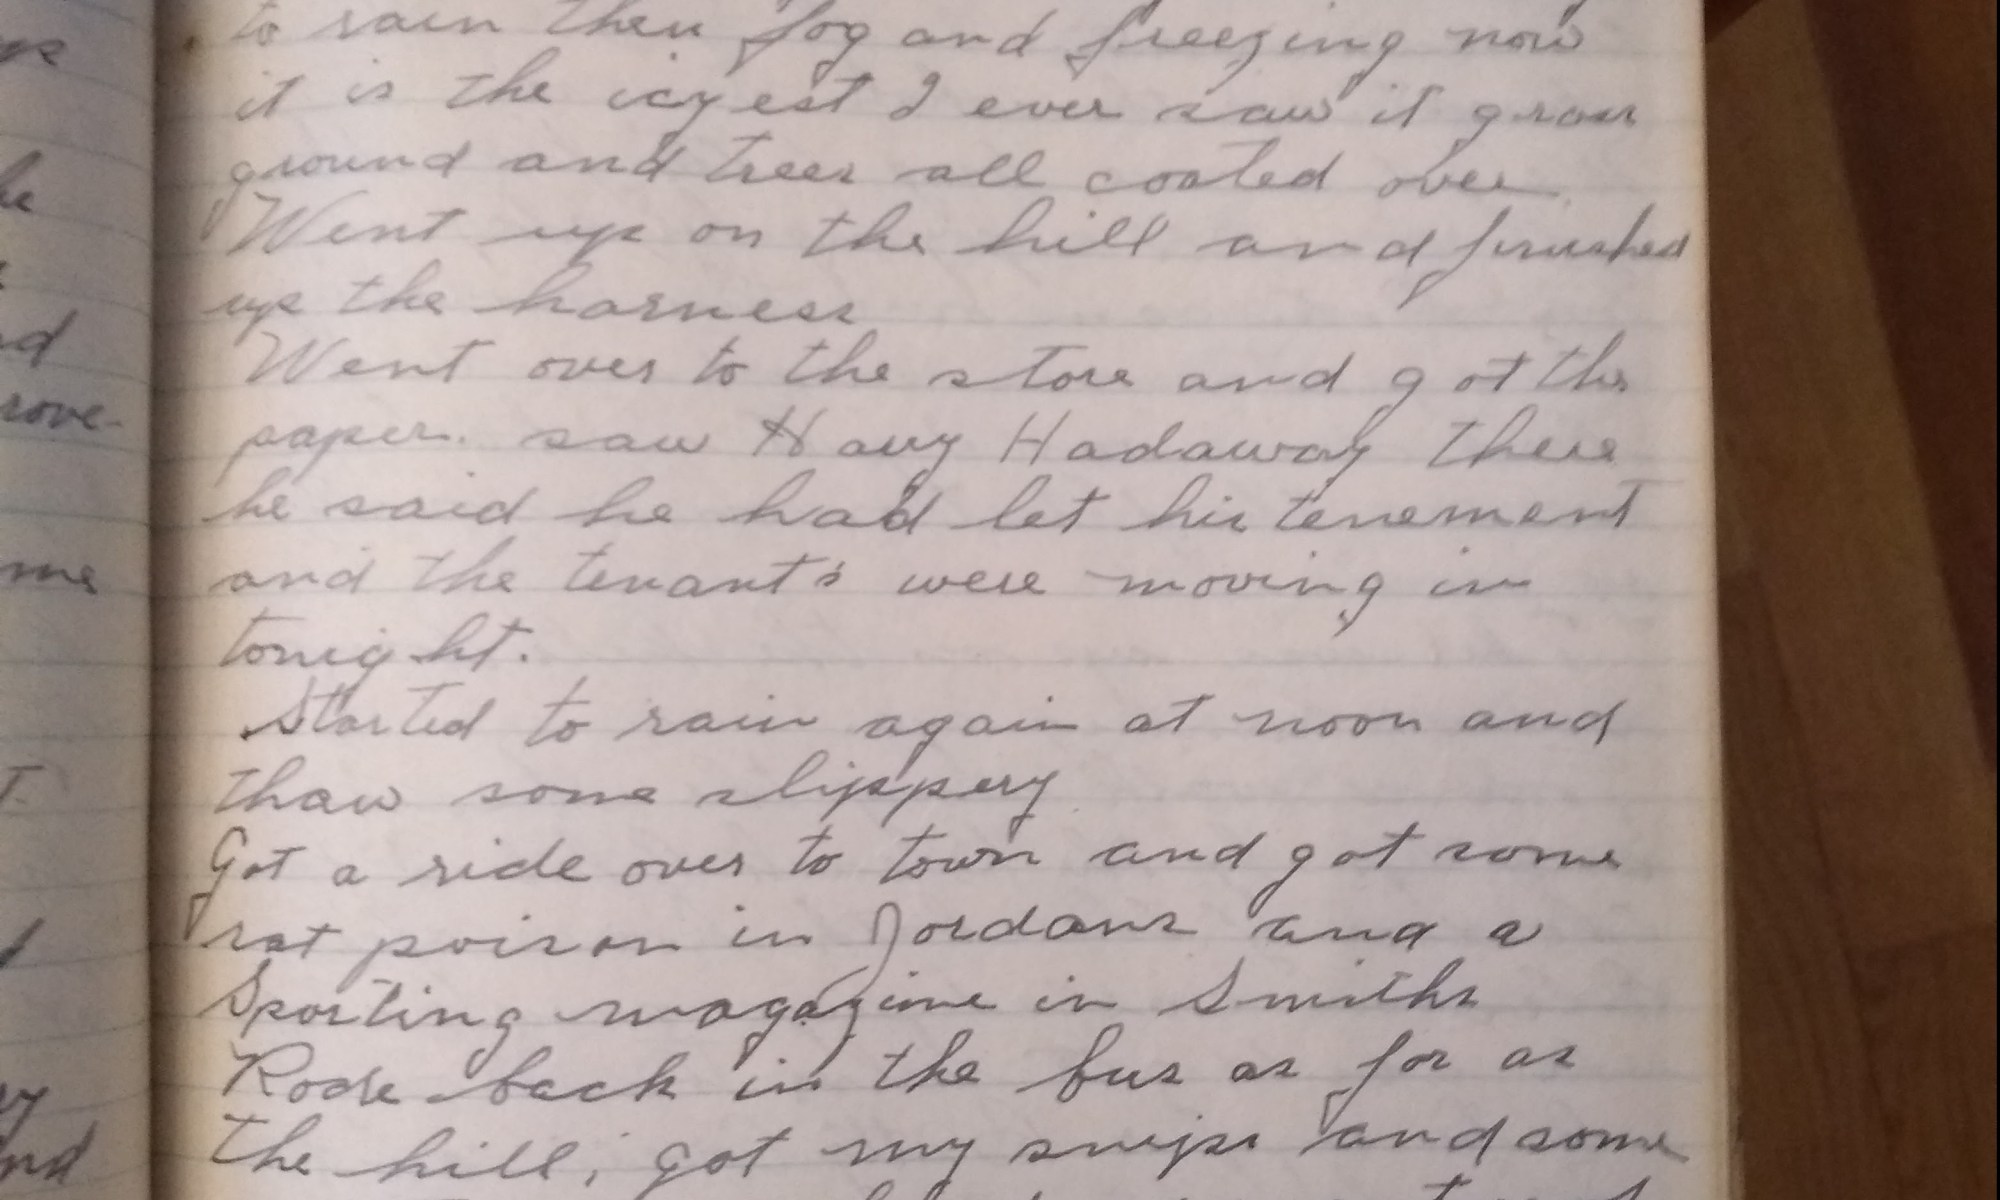 to rain then fog and freezing now
it is the icyest I ever saw it grass
ground and trees all coated over
Went up on the hill and finished
up the harness
Went over to the store and got the
paper. saw Harry Hadaway there
he said he had let his tenement
and the tenant's were moving in
tonight.
Started to rain again at noon and
thaw some slippery
Got a ride over to town and got some
rat poison in Jordans and a
Sporting magazine in Smiths
Rode back in the bus as far as
the hill, got my snips and some